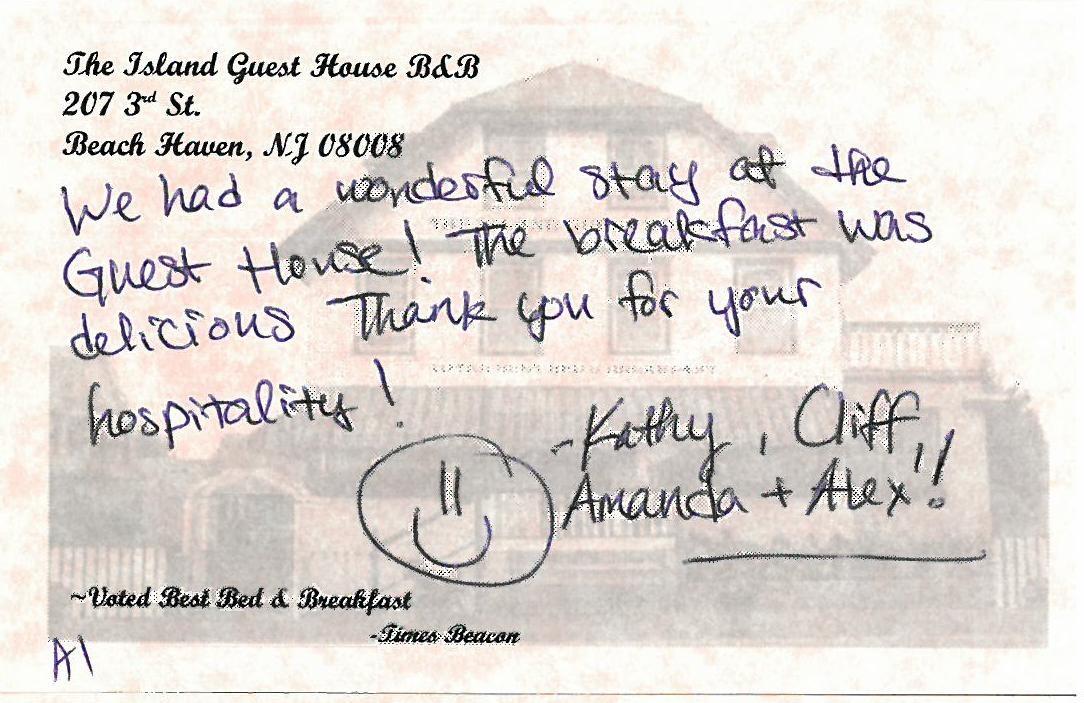 The Island Guest House B&B
207 3rd St.
Beach Haven, NJ 08008
We had a wonderful stay at the
Guest House! The breakfast was
delicious Thank you for your
hospitality!
-Kathy, Cliff,
Amanda + Alex!!
~Voted Best Bed & Breakfast
-Times Beacon
A1